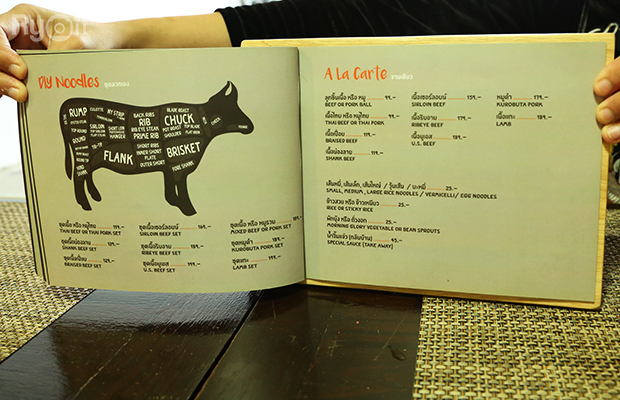 Ryoii
DIY Noodles
RUMP
CULOTTE
NY STRIP
SIRLOIN
TOP SIRLOIN
SHORT LOIN
BACK RIBS
RIB
RIB EYE STEAK
PRIME RIB
BLADE ROAST
CHUCK
POT ROAST
SHOULDER
TOP BLADE
FLAT IRON
ROUND
TRI-TIP
FLANK
SHORT RIBS
INNER SKIRT
PLATE
OUTER SKIRT
BRISKET
FORE SHANK
HIND SHANK
ชุดเนื้อ หรือ หมูไทย 119.-
THAI BEEF OR PORK SET
ชุดเนื้อน่องลาย 119.-
SHANK BEEF SET
ชุดเนื้อเปื่อย 129.-
BRAISED BEEF SET
ชุดเนื้อเซอร์ลอยน์ 169.-
SIRLOIN BEEF SET
ชุดเนื้อริบอาย 199.-
RIBEYE BEEF SET
ชุดเนื้อยูเอส
U.S. BEEF SET
ชุดเนื้อ หรือ หมูรวม
MIXED BEEF OR PORK SET
ชุดหมูดำ
KUROBUTA PORK SET
ชุดแกะ
LAMB SET
A La Carte จานเดียว
ลูกชิ้นเนื้อ หรือ หมู 99.-
BEEF OR PORK BALL
เนื้อไทย หรือ หมูไทย 99.-
THAI BEEF OR THAI PORK
เนื้อเปื่อย 119.-
BRAISED BEEF
เนื้อน่องลาย 119.-
SHANK BEEF
เนื้อเซอร์ลอยน์ 159.-
SIRLOIN BEEF
เนื้อริบอาย
RIBEYE BEEF
เนื้อยูเอส 189.-
U.S. BEEF
หมูดำ 179.-
KUROBUTA PORK
เนื้อแกะ 189.-
LAMB
เส้นหมี่, เส้นเล็ก, เส้นใหญ่ / วุ้นเส้น / บะหมี่ 25.-
SMALL, MEDIUM, LARGE RICE NOODLES / VERMICELLI/ EGG NOODLES
ข้าวสวย หรือ ข้าวเหนียว 25.-
RICE OR STICKY RICE
ผักบุ้ง หรือ ถั่วงอก 25.-
MORNING GLORY VEGETABLE OR BEAN SPROUTS
น้ำจิ้มแจ่ว (กลับบ้าน) 45.-
SPECIAL SAUCE [TAKE AWAY]